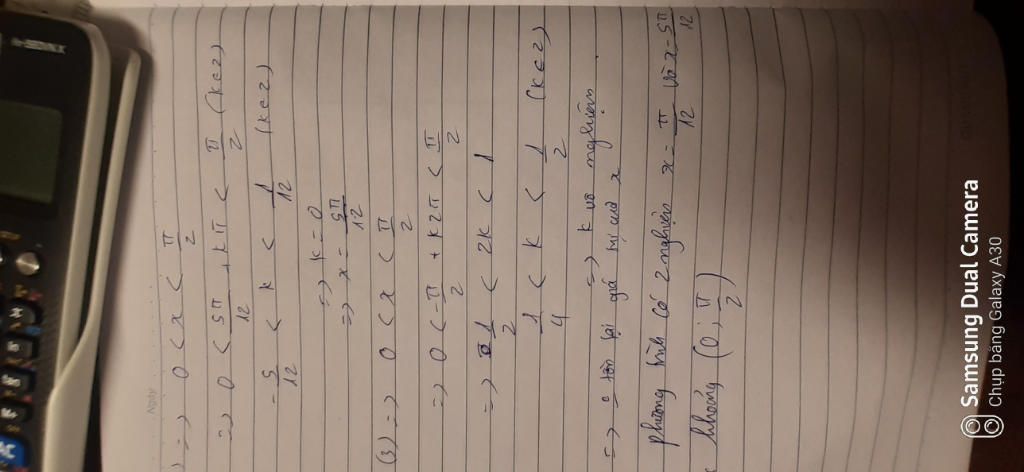 ) => 0 < x < π/2
=> 0 < 5π/12 + kπ < π/2 (k∈Z)
-5/12 < k < 1/12 (k∈Z)
=> k = 0
=> x = 5π/12
(3) => 0 < x < π/2
=> 0 < -π/2 + k2π < π/2
=> 1/2 < 2k < 1
1/4 < k < 1/2 (k∈Z)
=> k vô nghiệm
=> tồn tại giá trị của x
phương trình có 2 nghiệm x = π/12 và x = 5π/12
khoảng (0; π/2)
Ngày
Samsung Dual Camera
Chụp bằng Galaxy A30
AC